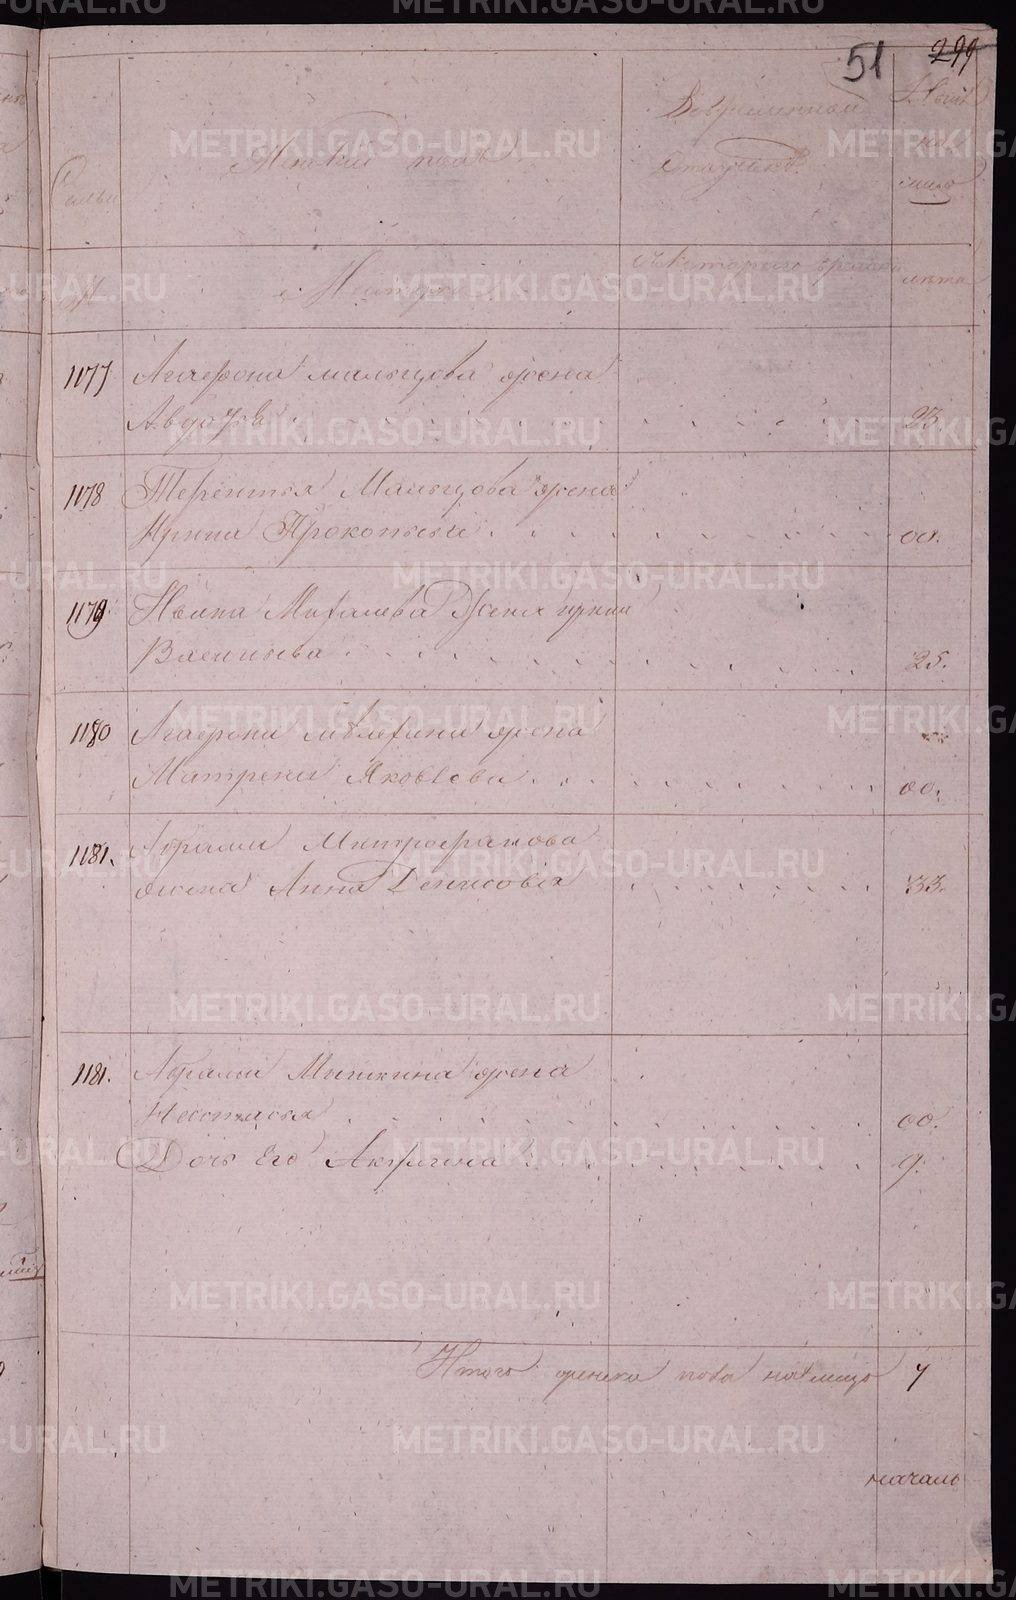 51 299
Семьи Женский полъ Во временной отлучкѣ Нынѣ на лицо
№ Женскій Съ котораго времени лѣта
1077 Агафона Мальцова жена
Авдотья 23.
1078 Терентья Мальцова жена
Ирина Прокопьева 00.
1179 Ивана Михалева жена Ирина
Васильева 25.
1180 Агафона жена
Матрена Яковлева 00.
1181. Абрама Митрофанова
жена Анна Денисова 33.
1181. Абрама Мышкина жена
Настасья 00.
Дочь Его Акулина 9.
Итого женска пола на лицо 7
началь
METRIKI.GASO-URAL.RU